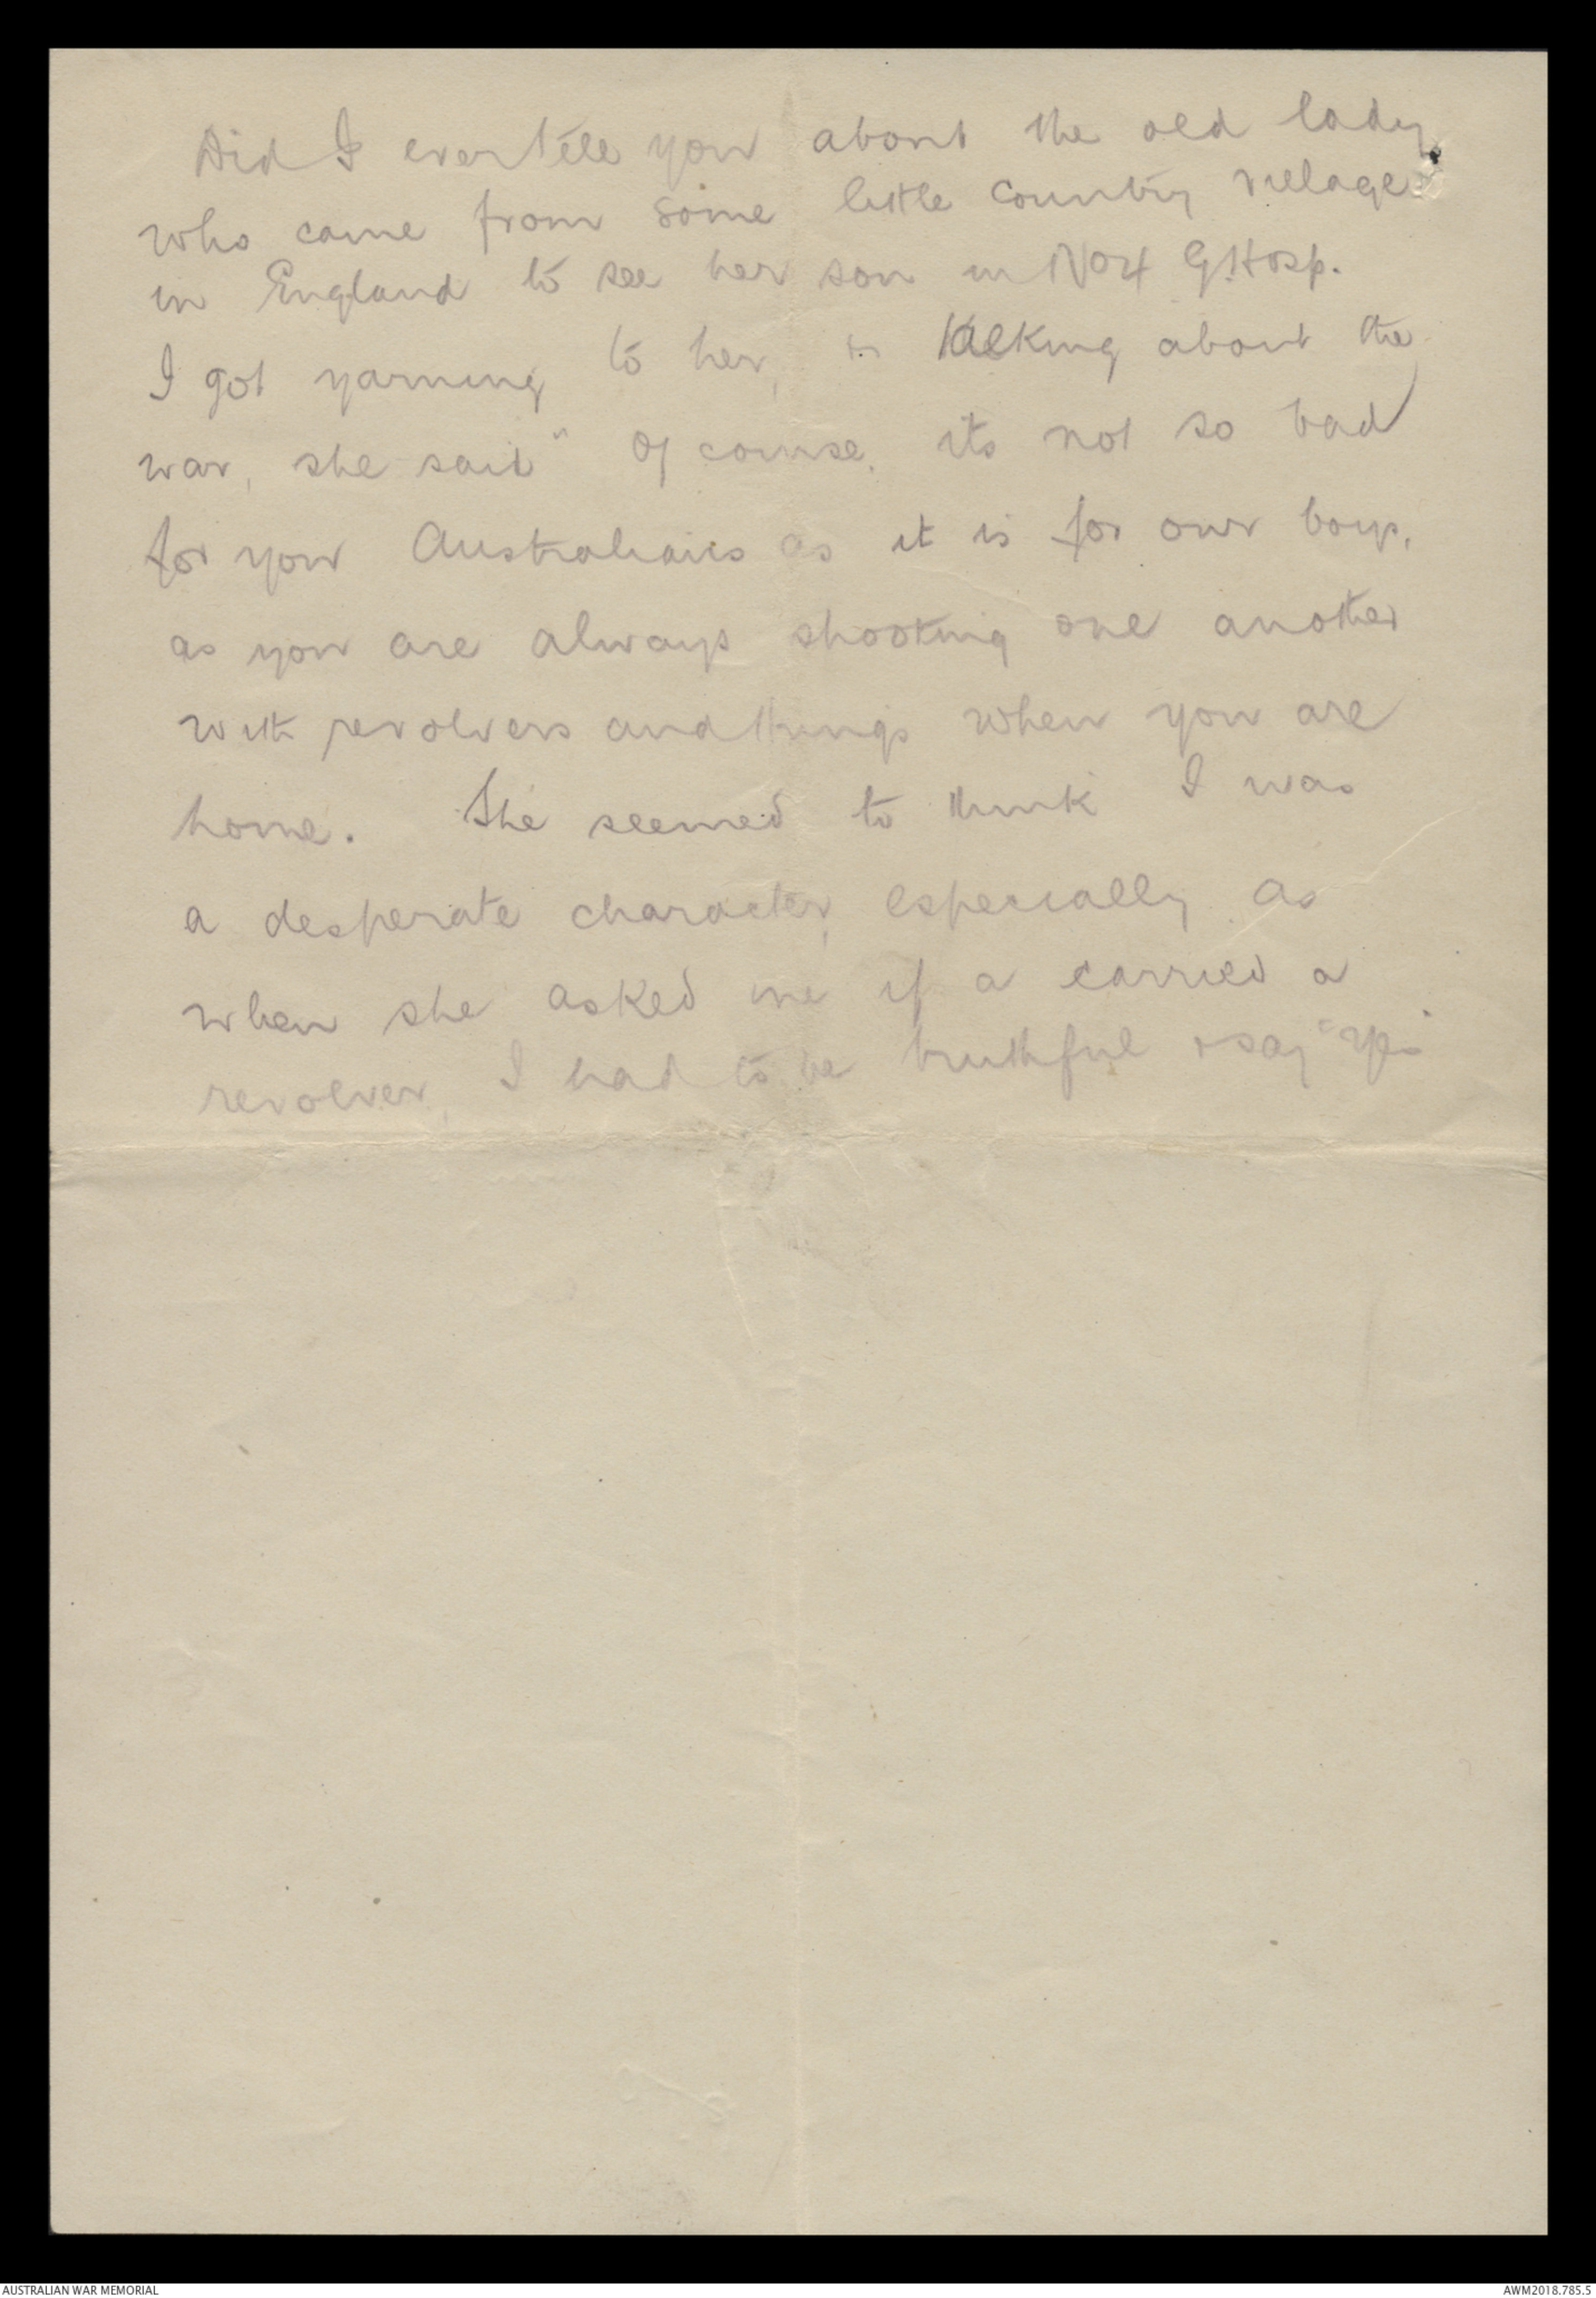 Did I ever tell you about the old lady
who came from some little country village
in England to see her son in No 4 G.Hosp.
I got yarning to her, & talking about the
war, she said " Of course, its not so bad
for you Australians as it is for our boys,
as you are always shooting one another
with revolvers and things when you are
home. She seemed to think I was
a desperate character, especially as
when she asked me if a carried a
revolver, I had to be truthful & say "Yes"
AUSTRALIAN WAR MEMORIAL
AWM2018.785.5